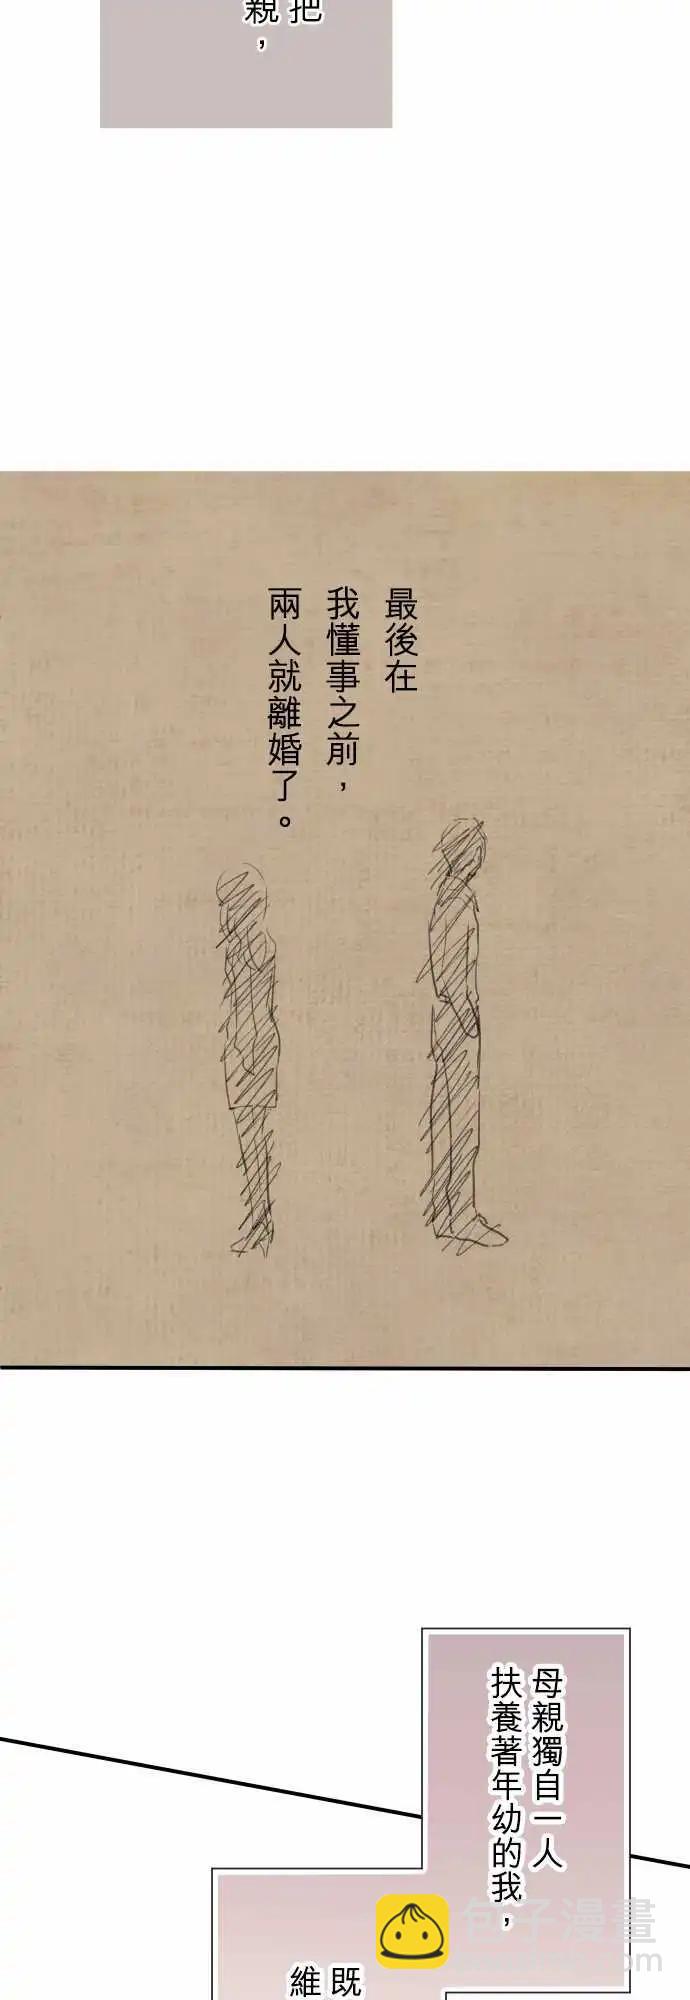 把
親，
最後在
我懂事之前，
兩人就離婚了。
母親獨自一人
扶養著年幼的我，
既
維
包子漫畫